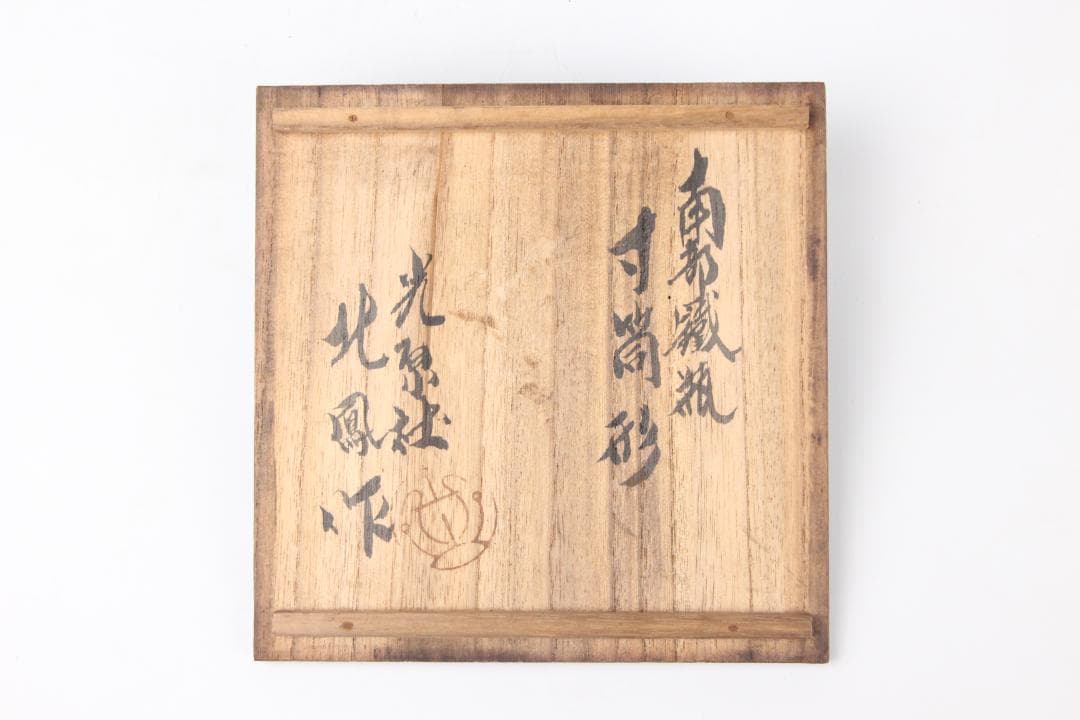 南部鐵瓶
寸筒形
光原社
北鳳作